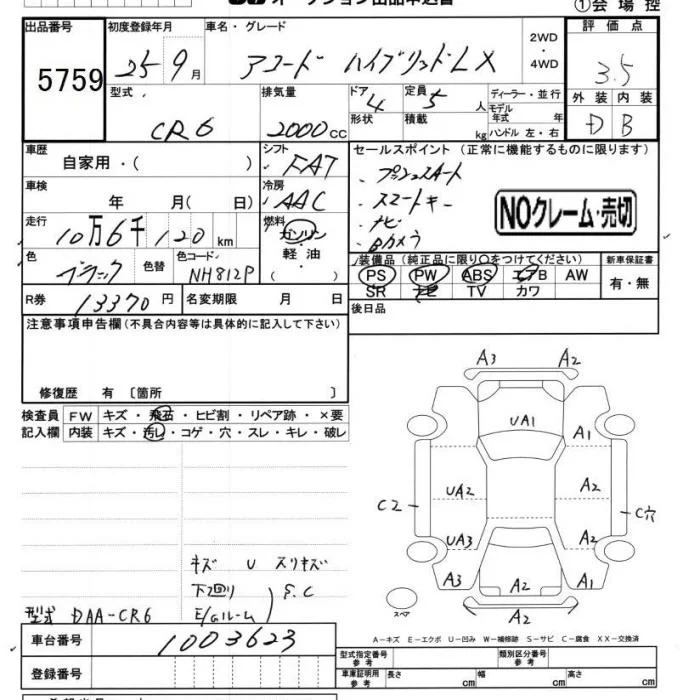 オークション出品申込書
①会場控
出品番号 初度登録年月 車名・グレード 2WD・4WD 評価点
5759 25年9月 アコード ハイブリッドLX 3.5
型式 排気量 ドア 定員 ディーラー・並行 外装 内装
CR6 2000cc 4 5人 モデル年式 年 D B
形状 積載 kg ハンドル 左・右
車歴 シフト セールスポイント(正常に機能するものに限ります)
自家用・( ) FAT プッシュスタート
車検 冷房 スマートキー
年 月( 日) AAC ナビ
走行 燃料 Bカメラ
10万6千120km ガソリン・軽油・( )
NOクレーム・売切
色 色替 色コード 装備品(純正品に限り○をつけてください) 新車保証書
ブラック NH812P PS PW ABS エアB AW 有・無
SR ナビ TV カワ
R券 13370円 名変期限 月 日 後日品
注意事項申告欄(不具合内容等は具体的に記入して下さい)
修復歴 有〔箇所 〕
検査員 FW キズ・飛石・ヒビ割・リペア跡・×要
記入欄 内装 キズ・汚し・コゲ・穴・スレ・キレ・破レ
A3 A2
UA1 A1
C2 UA2 A2 C穴
UA3 A2
A3 A2 A1
スペア A2
キズ U スリキズ
下回り
E/Gルーム S.C
型式 DAA-CR6
A－キズ E－エクボ U－凹み W－補修跡 S－サビ C－腐食 XX－交換済
車台番号 1003623
型式指定番号 参考 類別区分番号 参考
登録番号 車庫証明用 参考 長さ cm 幅 cm 高さ cm